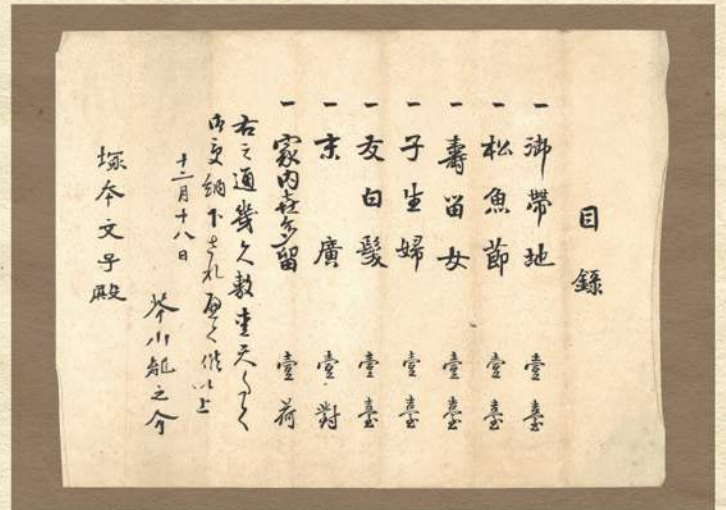 目録
一 御帶地 壹臺
一 松魚節 壹臺
一 壽留女 壹臺
一 子生婦 壹臺
一 友白髮 壹臺
一 末廣 壹對
一 家内喜多留 壹荷
右之通幾久敷
御受納下され
十二月十八日
芥川龍之介
塚本文子殿